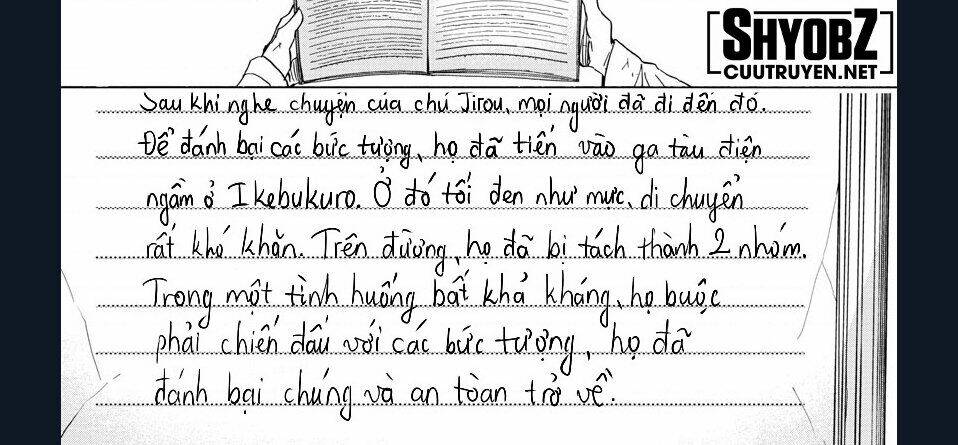 SHYOBZ
CUUTRUYEN.NET
Sau khi nghe chuyện của chú Jirou, mọi người đã đi đến đó.
Để đánh bại các bức tượng, họ đã tiến vào ga tàu điện
ngầm ở Ikebukuro. Ở đó tối đen như mực, di chuyển
rất khó khăn. Trên đường, họ đã bị tách thành 2 nhóm.
Trong một tình huống bất khả kháng, họ buộc
phải chiến đấu với các bức tượng, họ đã
đánh bại chúng và an toàn trở về.